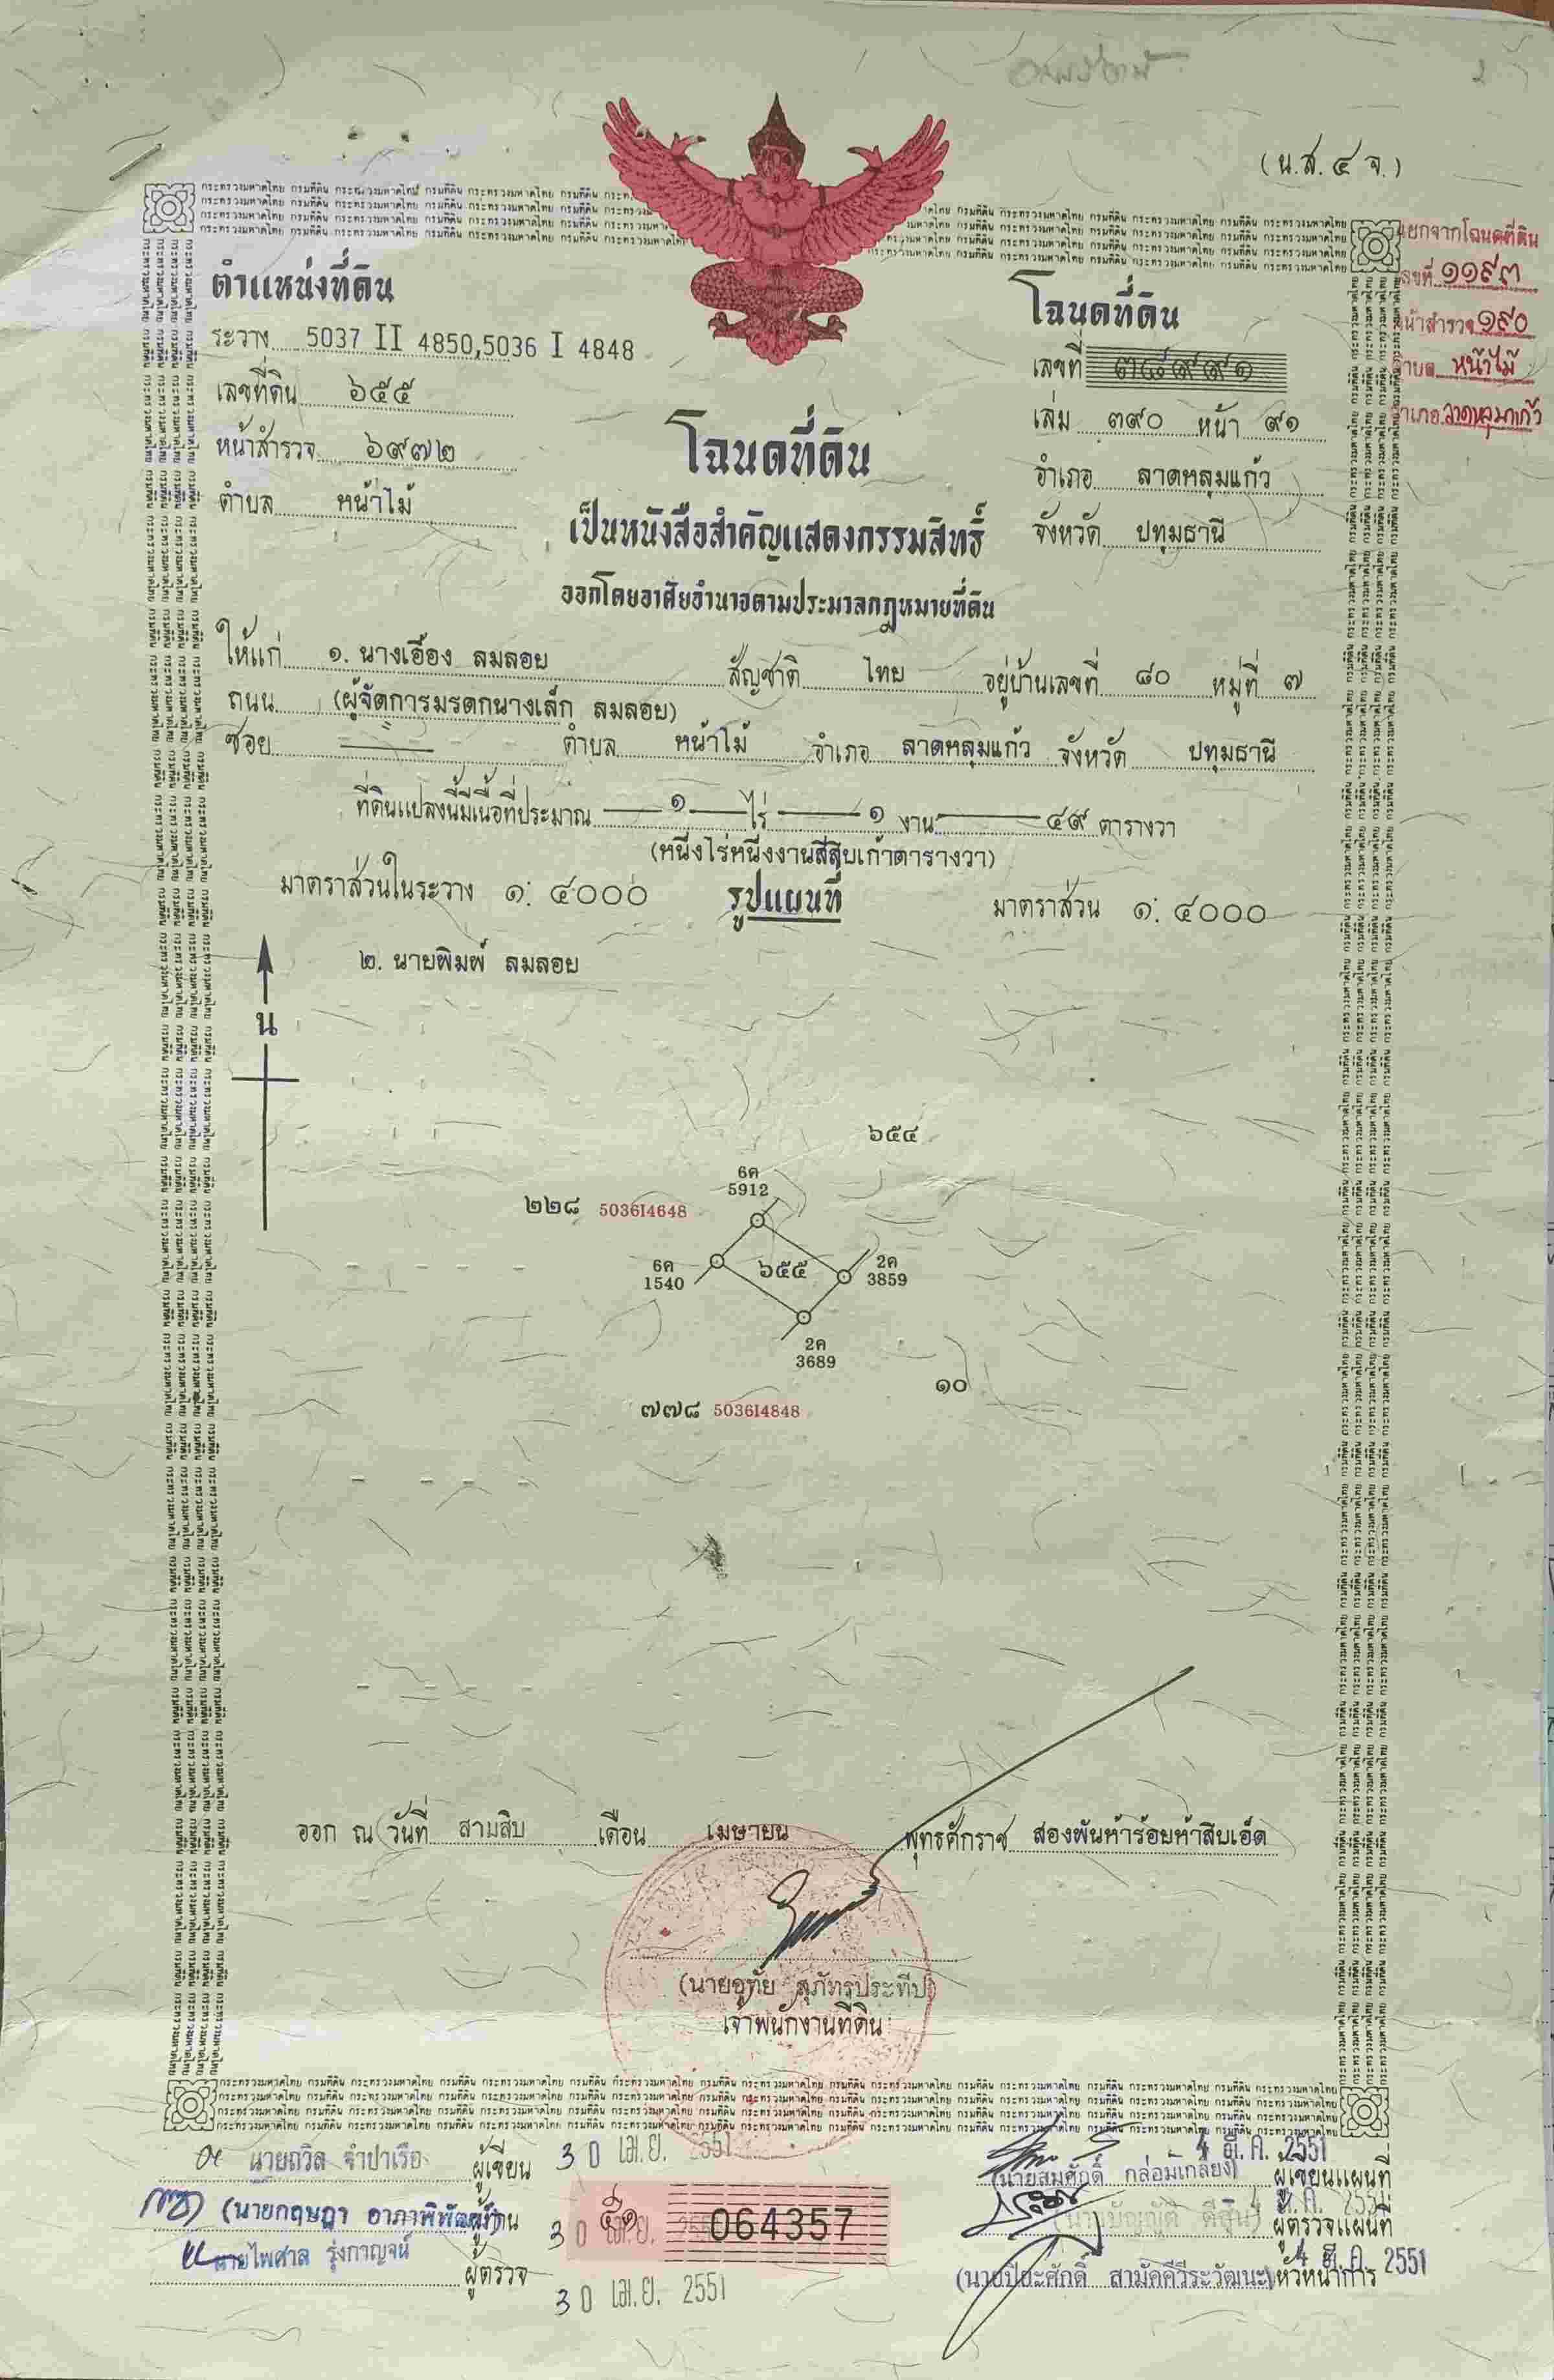 (น.ส.๔ จ.)
แยกจากโฉนดที่ดิน
เลขที่ ๑๑๙๓
หน้าสำรวจ ๑๙๐
ตำบล หน้าไม้
อำเภอ ลาดหลุมแก้ว
ตำแหน่งที่ดิน
ระวาง 5037 II 4850,5036 I 4848
เลขที่ดิน ๖๕๕
หน้าสำรวจ ๖๙๗๒
ตำบล หน้าไม้
โฉนดที่ดิน
เลขที่ ๓๘๙๙๑
เล่ม ๓๙๐ หน้า ๙๑
อำเภอ ลาดหลุมแก้ว
จังหวัด ปทุมธานี
โฉนดที่ดิน
เป็นหนังสือสำคัญแสดงกรรมสิทธิ์
ออกโดยอาศัยอำนาจตามประมวลกฎหมายที่ดิน
ให้แก่ ๑. นางเอื้อง ลมลอย สัญชาติ ไทย อยู่บ้านเลขที่ ๘๐ หมู่ที่ ๗
ถนน (ผู้จัดการมรดกนางเล็ก ลมลอย)
ซอย ตำบล หน้าไม้ อำเภอ ลาดหลุมแก้ว จังหวัด ปทุมธานี
ที่ดินแปลงนี้มีเนื้อที่ประมาณ ๑ ไร่ ๑ งาน ๔๙ ตารางวา
(หนึ่งไร่หนึ่งงานสี่สิบเก้าตารางวา)
มาตราส่วนในระวาง ๑: ๔๐๐๐ รูปแผนที่ มาตราส่วน ๑: ๔๐๐๐
๒. นายพิมพ์ ลมลอย
น
๖๕๔
6ค
5912
๒๒๘ 5036I4648
6ค
1540
๖๕๕
2ค
3859
2ค
3689
๑๐
๗๗๘ 5036I4848
ออก ณ วันที่ สามสิบ เดือน เมษายน พุทธศักราช สองพันห้าร้อยห้าสิบเอ็ด
(นายอุทัย สุภัทรประทีป)
เจ้าพนักงานที่ดิน
นายถวิล จำปาเรือ ผู้เขียน 30 เม.ย. 2551
(นายกฤษฎา อาภาพิพัฒน์) ผู้ทาน 30 เม.ย.
นายไพศาล รุ่งกาญจน์ ผู้ตรวจ 30 เม.ย. 2551
๕๑ 064357
(นายสมศักดิ์ กล่อมเกลี้ยง) ผู้เขียนแผนที่ 4 มี.ค. 2551
ผู้ตรวจแผนที่ 4 มี.ค. 2551
(นายปิยะศักดิ์ สามัคคีวีระวัฒนะ) หัวหน้าการ 4 มี.ค. 2551